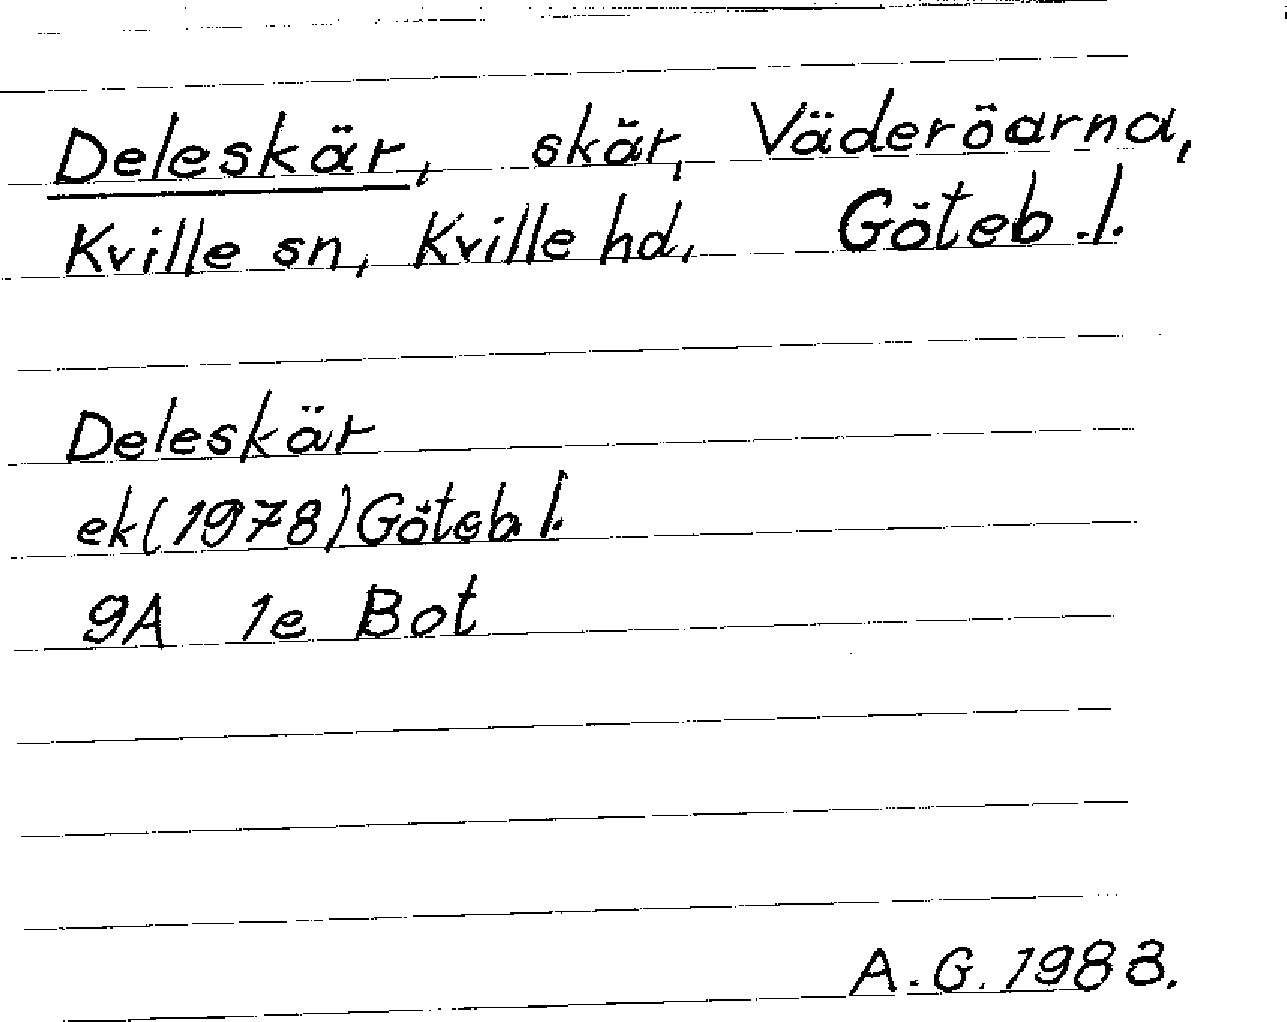 Deleskär, skär, Väderöarna,
Kville sn, Kville hd, Göteb.l.
Deleskär
ek(1978)Göteb.l.
9A 1e Bot
A.G. 1988.